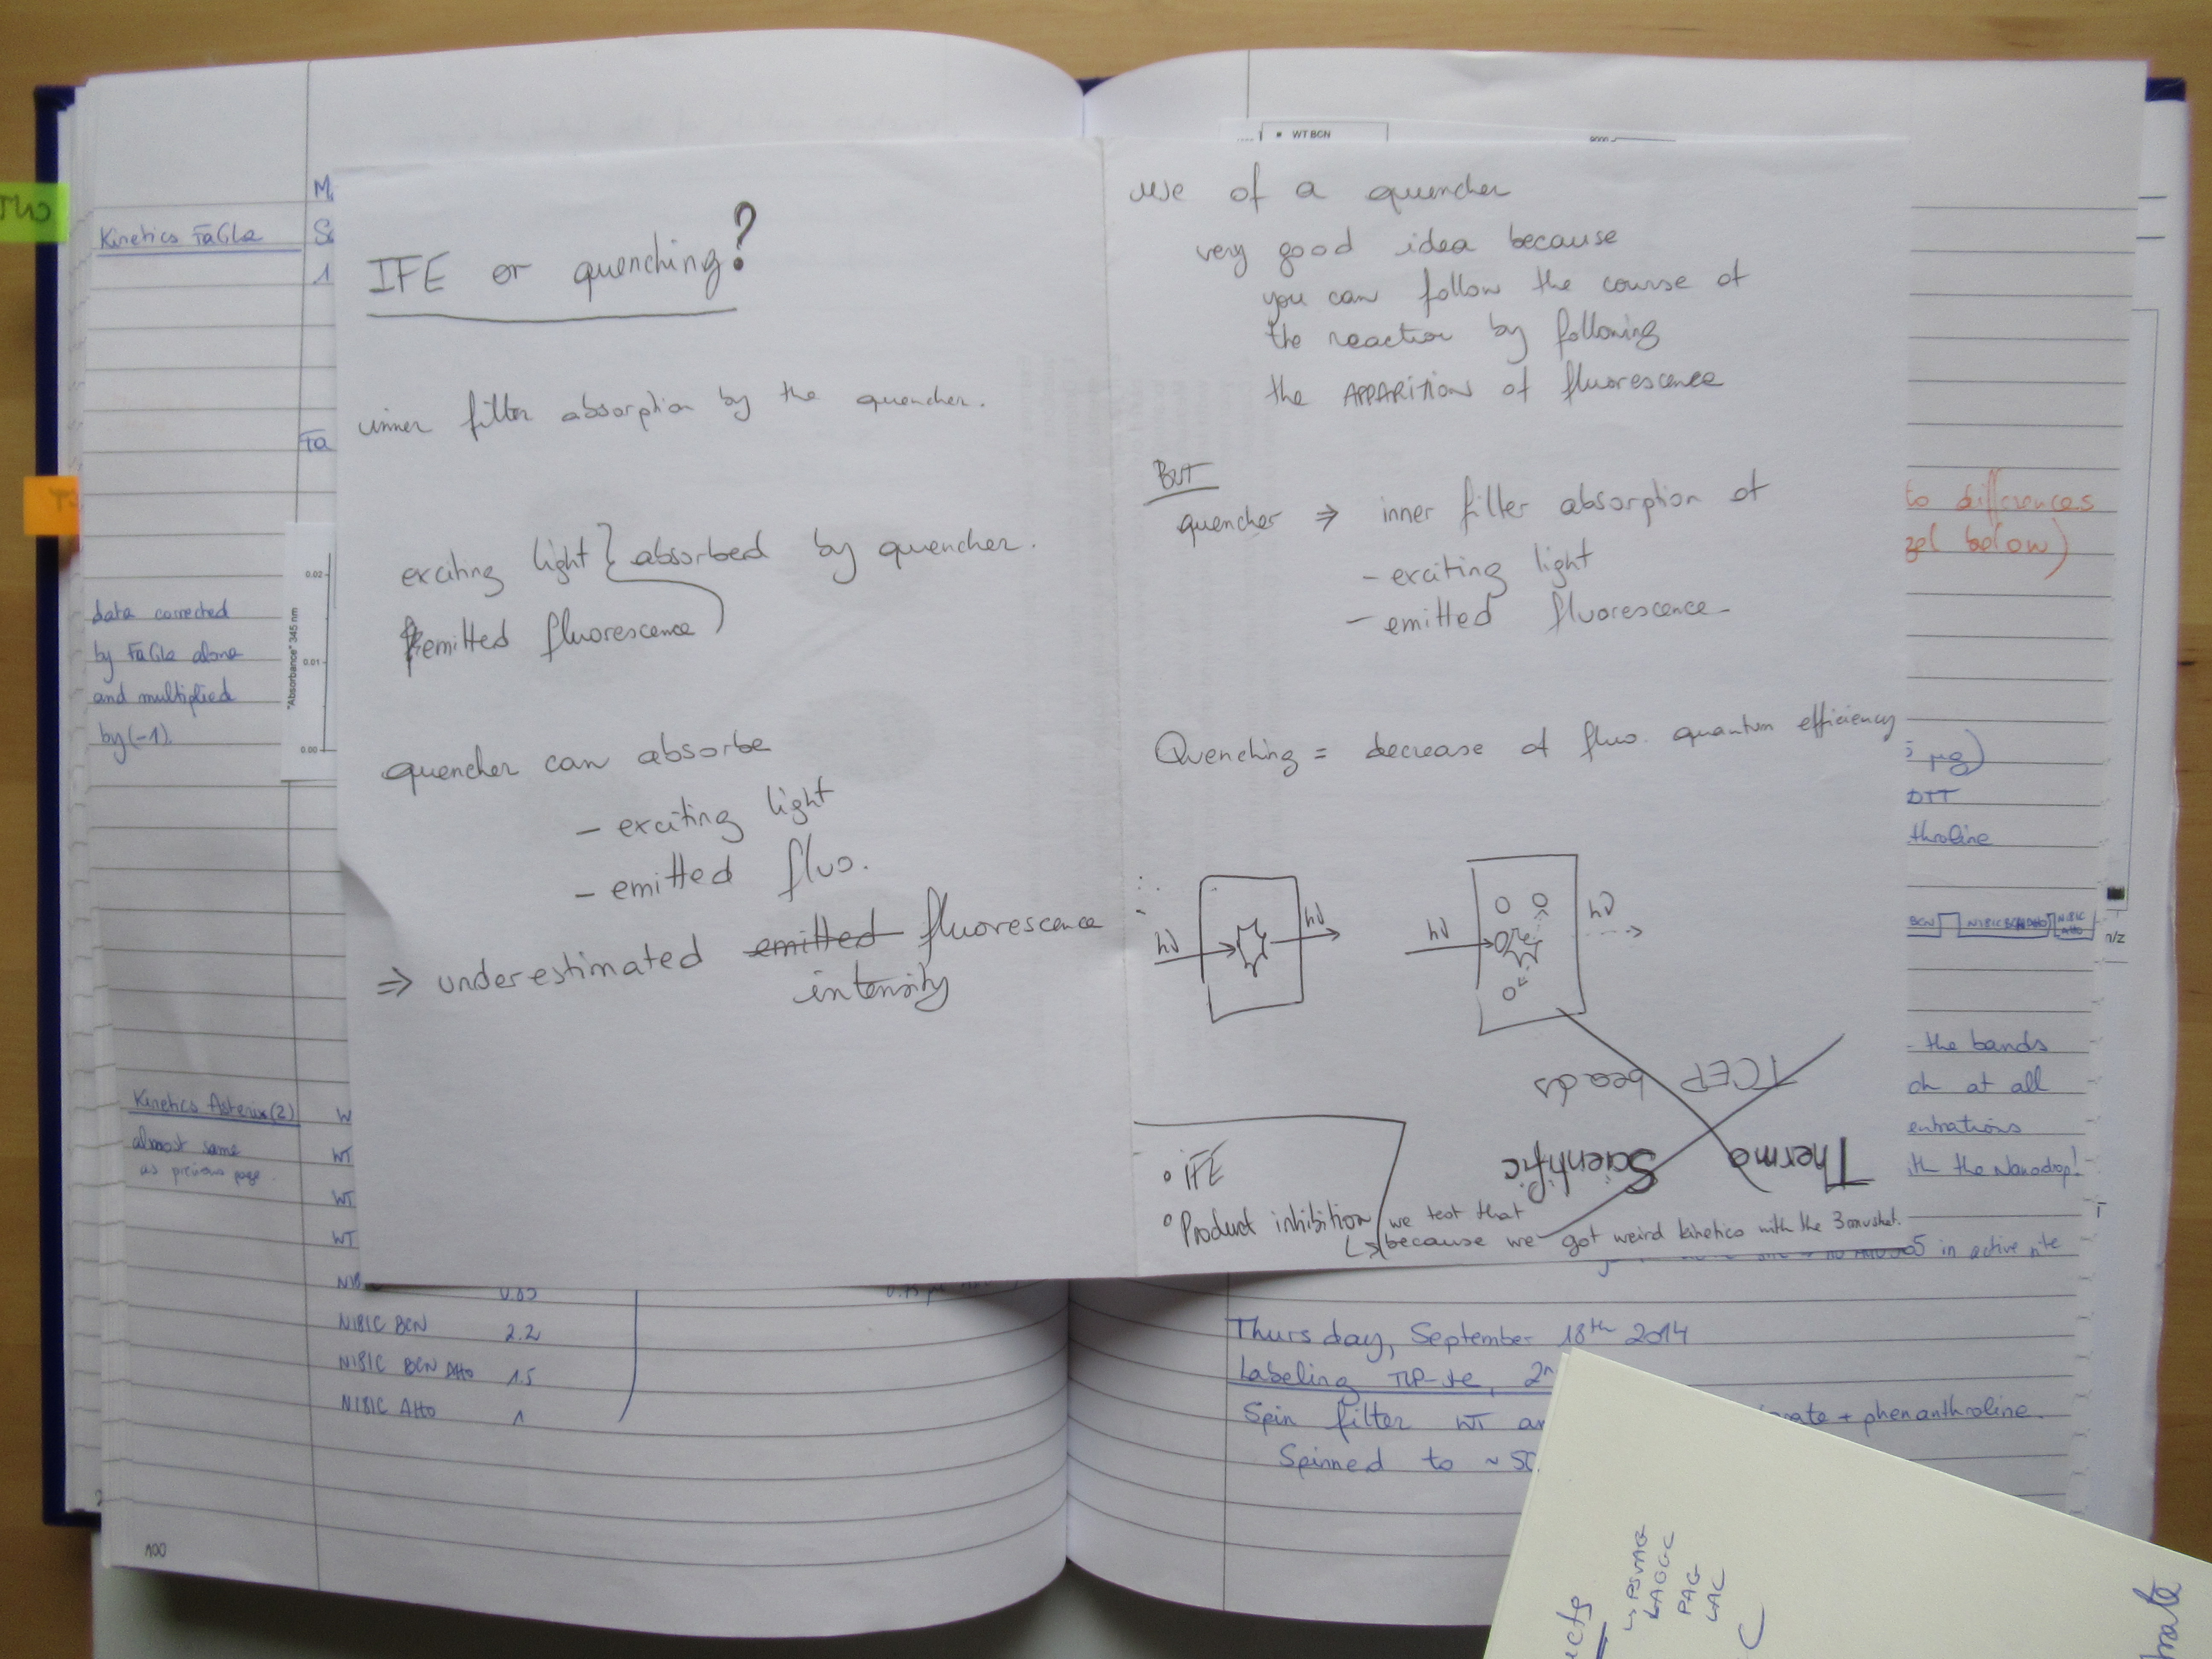 Kinetics FaGLa
data corrected
by FaGLa alone
and multiplied
by (-1).
"Absorbance" 345 nm
0.02
0.01
0.00
Kinetics Asterix (2)
almost same
as previous page.
WT
WT
WT
NIBIC BCN 2.2
NIBIC BCN Atto 1.5
NIBIC Atto 1
100
IFE or quenching?
inner filter absorption by the quencher.
exciting light } absorbed by quencher.
emitted fluorescence
quencher can absorbe
- exciting light
- emitted fluo.
⇒ underestimated emitted fluorescence
intensity
WT BCN
use of a quencher
very good idea because
you can follow the course of
the reaction by following
the APPARITION of fluorescence
BUT
quencher ⇒ inner filter absorption of
- exciting light
- emitted fluorescence
Quenching = decrease of fluo. quantum efficiency
hν hν hν hν
TCEP beads
Thermo Scientific
• IFE
• Product inhibition we test that
↳ because we got weird kinetics with the 3
to differences
gel below)
µg)
DTT
throline
BCN NIBIC BCN Atto NIBIC Atto
m/z
the bands
at all
entrations
the Nanodrop!
in active site
Thursday, September 18th 2014
Labeling TLP-ste, 2
Spin filter WT + phenanthroline.
Spinned to ~ 50
↳ PSVAG
LAGGC
PAG
LAC